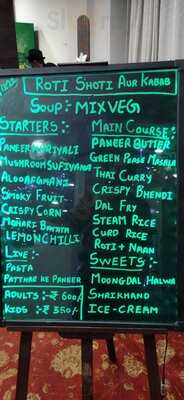 ROTI SHOTI AUR KABAB
SOUP:- MIX VEG
STARTERS:-
PANEER HARIYALI
MUSHROOM SUFIYANA
ALOO AFGHANI
SMOKY FRUIT
CRISPY CORN
BATATA
LEMON CHILLI
LIVE:-
PASTA
PATTHAR KE PANEER
ADULTS:- ₹ 600/-
KIDS:- ₹ 350/-
MAIN COURSE:-
PANEER BUTTER
GREEN PEASE MASALA
THAI CURRY
CRISPY BHENDI
DAL FRY
STEAM RICE
CURD RICE
ROTI + NAAN
SWEETS:-
MOONGDAL HALWA
SHRIKHAND
ICE-CREAM